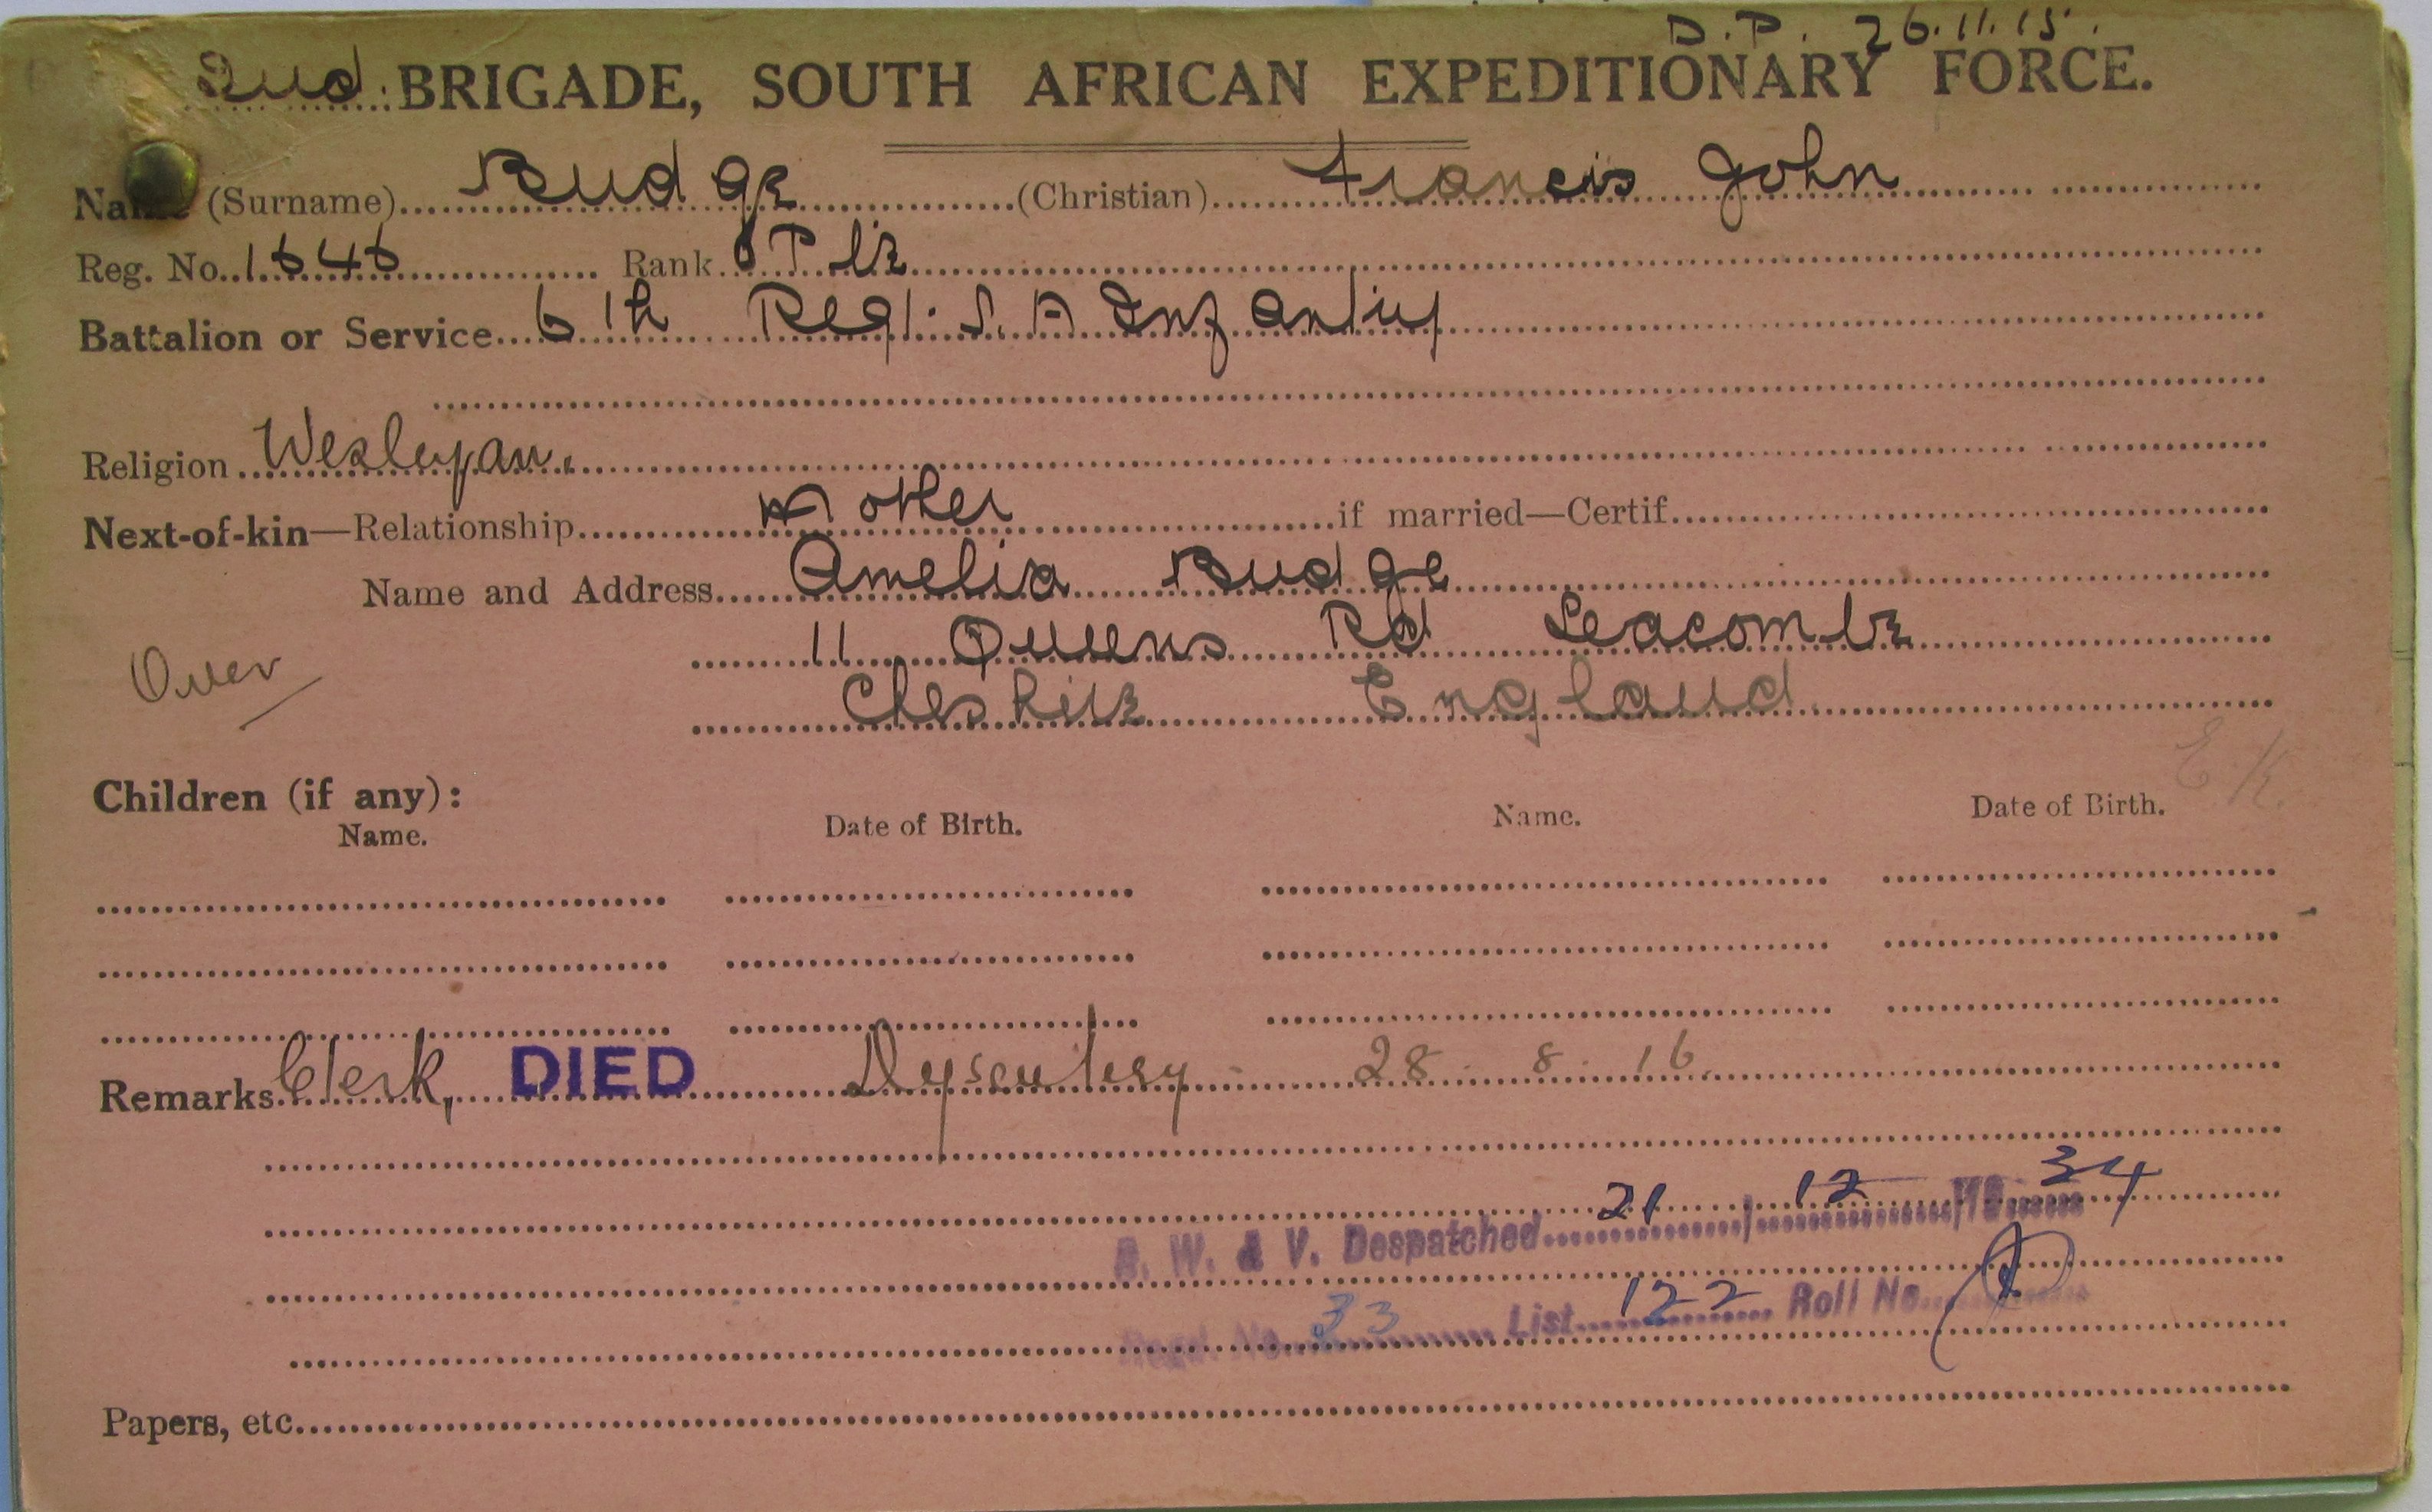 D.P. 26.11.15.
2nd. BRIGADE, SOUTH AFRICAN EXPEDITIONARY FORCE.
Name (Surname) Budge (Christian) Francis John
Reg. No. 1646 Rank Pte
Battalion or Service 6th Regt. S.A Infantry
Religion Wesleyan.
Next-of-kin—Relationship Mother if married—Certif.
Name and Address Amelia Budge
11 Queens Rd Seacombe
Over
Cheshire England
E.K.
Children (if any):
Name. Date of Birth. Name. Date of Birth.
Remarks Clerk, DIED Dysentery 28 8 16.
B. W. & V. Despatched 21 / 12 /19 34
Regd. No. 33 List 122 Roll No.
Papers, etc.